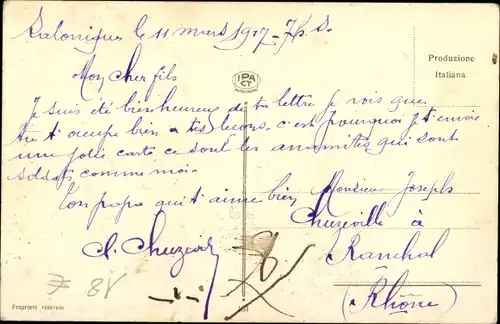 Salonique le 11 mars 1917
Mon cher fils
Je suis été bien heureux de ta lettre je vois que
tu t ocupe bien a tes leçons c'est pourquoi j t envoie
une jolie carte ce sont les annamites qui sont
soldats comme moi
Ton papa qui t aime bien
C. Chuzeville
IPA
CT
Produzione
Italiana
Monsieur Joseph
Chuzeville à
Ranchal
(Rhône)
Proprietà riservata